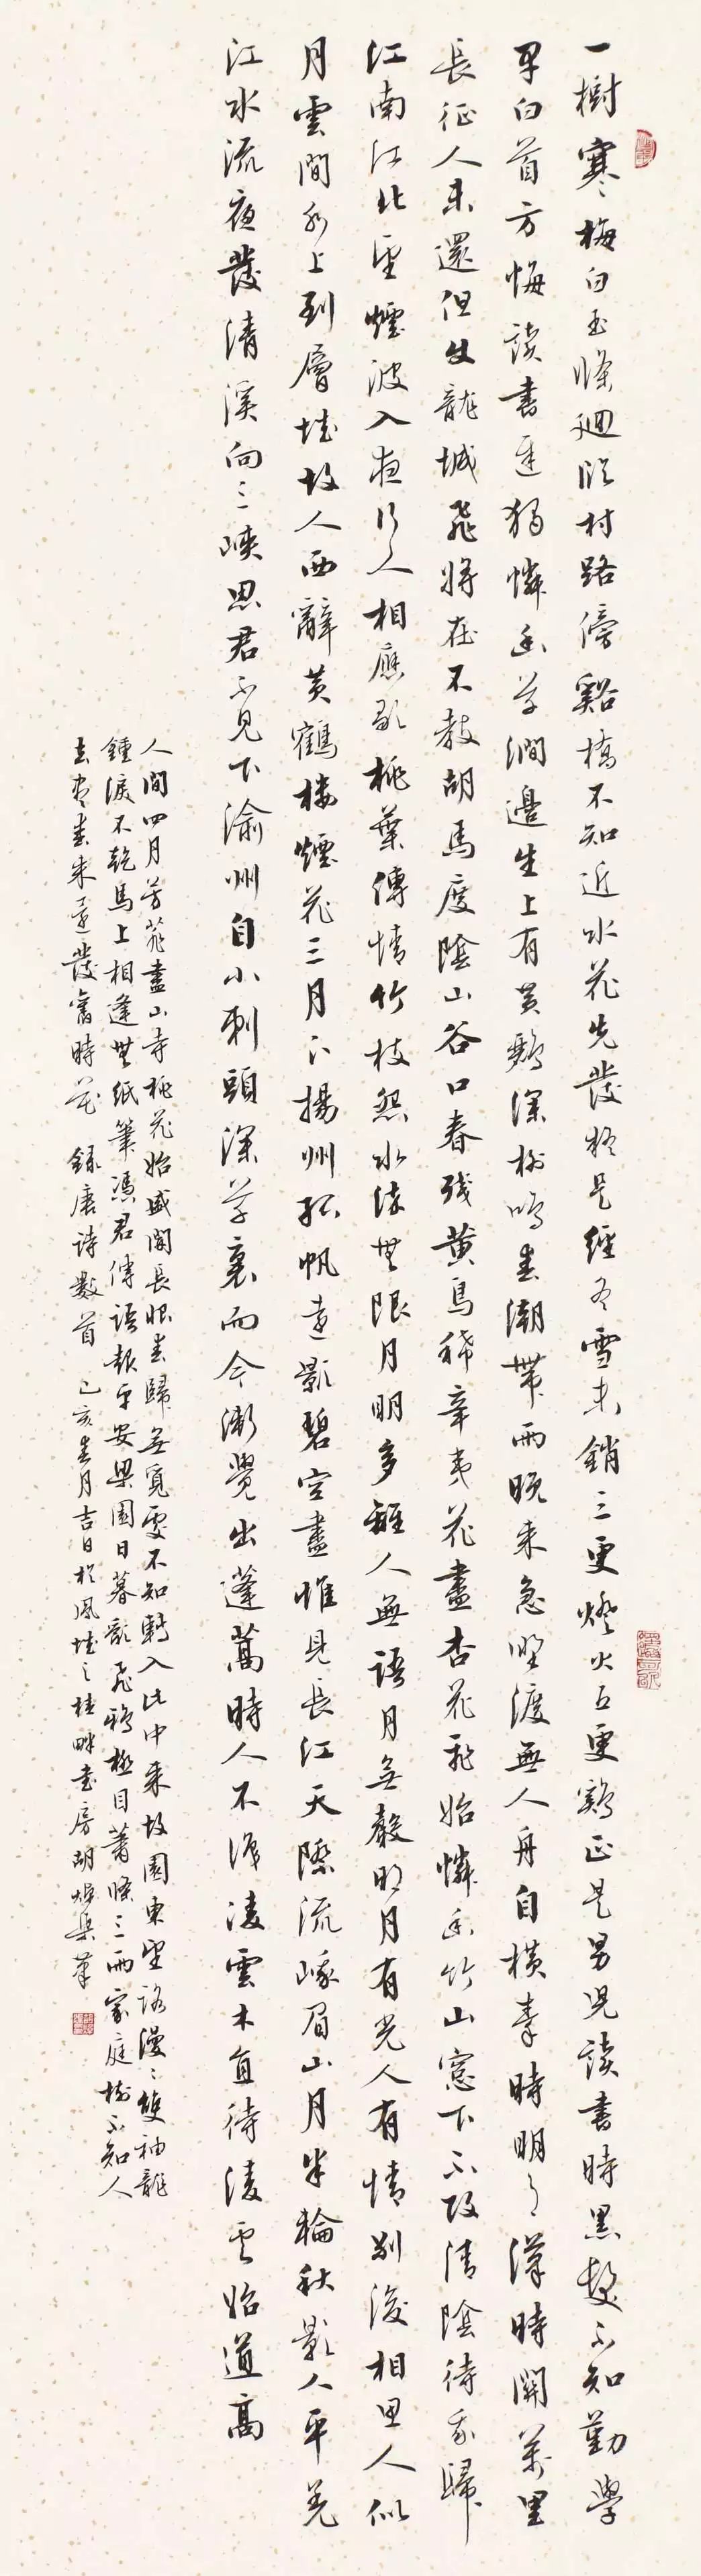 一樹寒梅白玉條迴臨村路傍谿橋不知近水花先發於是經冬雪未銷三更燈火五更鷄正是男児讀書時黑髮不知勤學
早白首方悔讀書遲獨憐幽草澗邊生上有黄鸝深樹鳴春潮帶雨晚来急野渡無人舟自横秦時明月漢時關萬里
長征人未還但使龍城飛將在不教胡馬度陰山谷口春殘黄鳥稀辛夷花盡杏花飛始憐幽竹山窓下不改清陰待我歸
江南江北望煙波入夜行人相應歌桃葉傳情竹枝怨水流無限月明多離人無語月無聲明月有光人有情別後相思人似
月雲間水上到層城故人西辭黄鶴樓煙花三月下揚州孤帆遠影碧空盡惟見長江天際流峨眉山月半輪秋影入平羌
江水流夜發清溪向三峽思君不見下渝州自小刺頭深草裏而今漸覺出蓬蒿時人不識凌雲木直待凌雲始道高
人間四月芳菲盡山寺桃花始盛開長恨春歸無覓處不知轉入此中来故園東望路漫漫雙袖龍
鍾淚不乾馬上相逢無紙筆憑君傳語報平安梁園日暮亂飛鴉極目蕭條三兩家庭樹不知人
去盡春来還發舊時花 録唐詩數首 己亥春月吉日於鳳城之桂畔書房胡